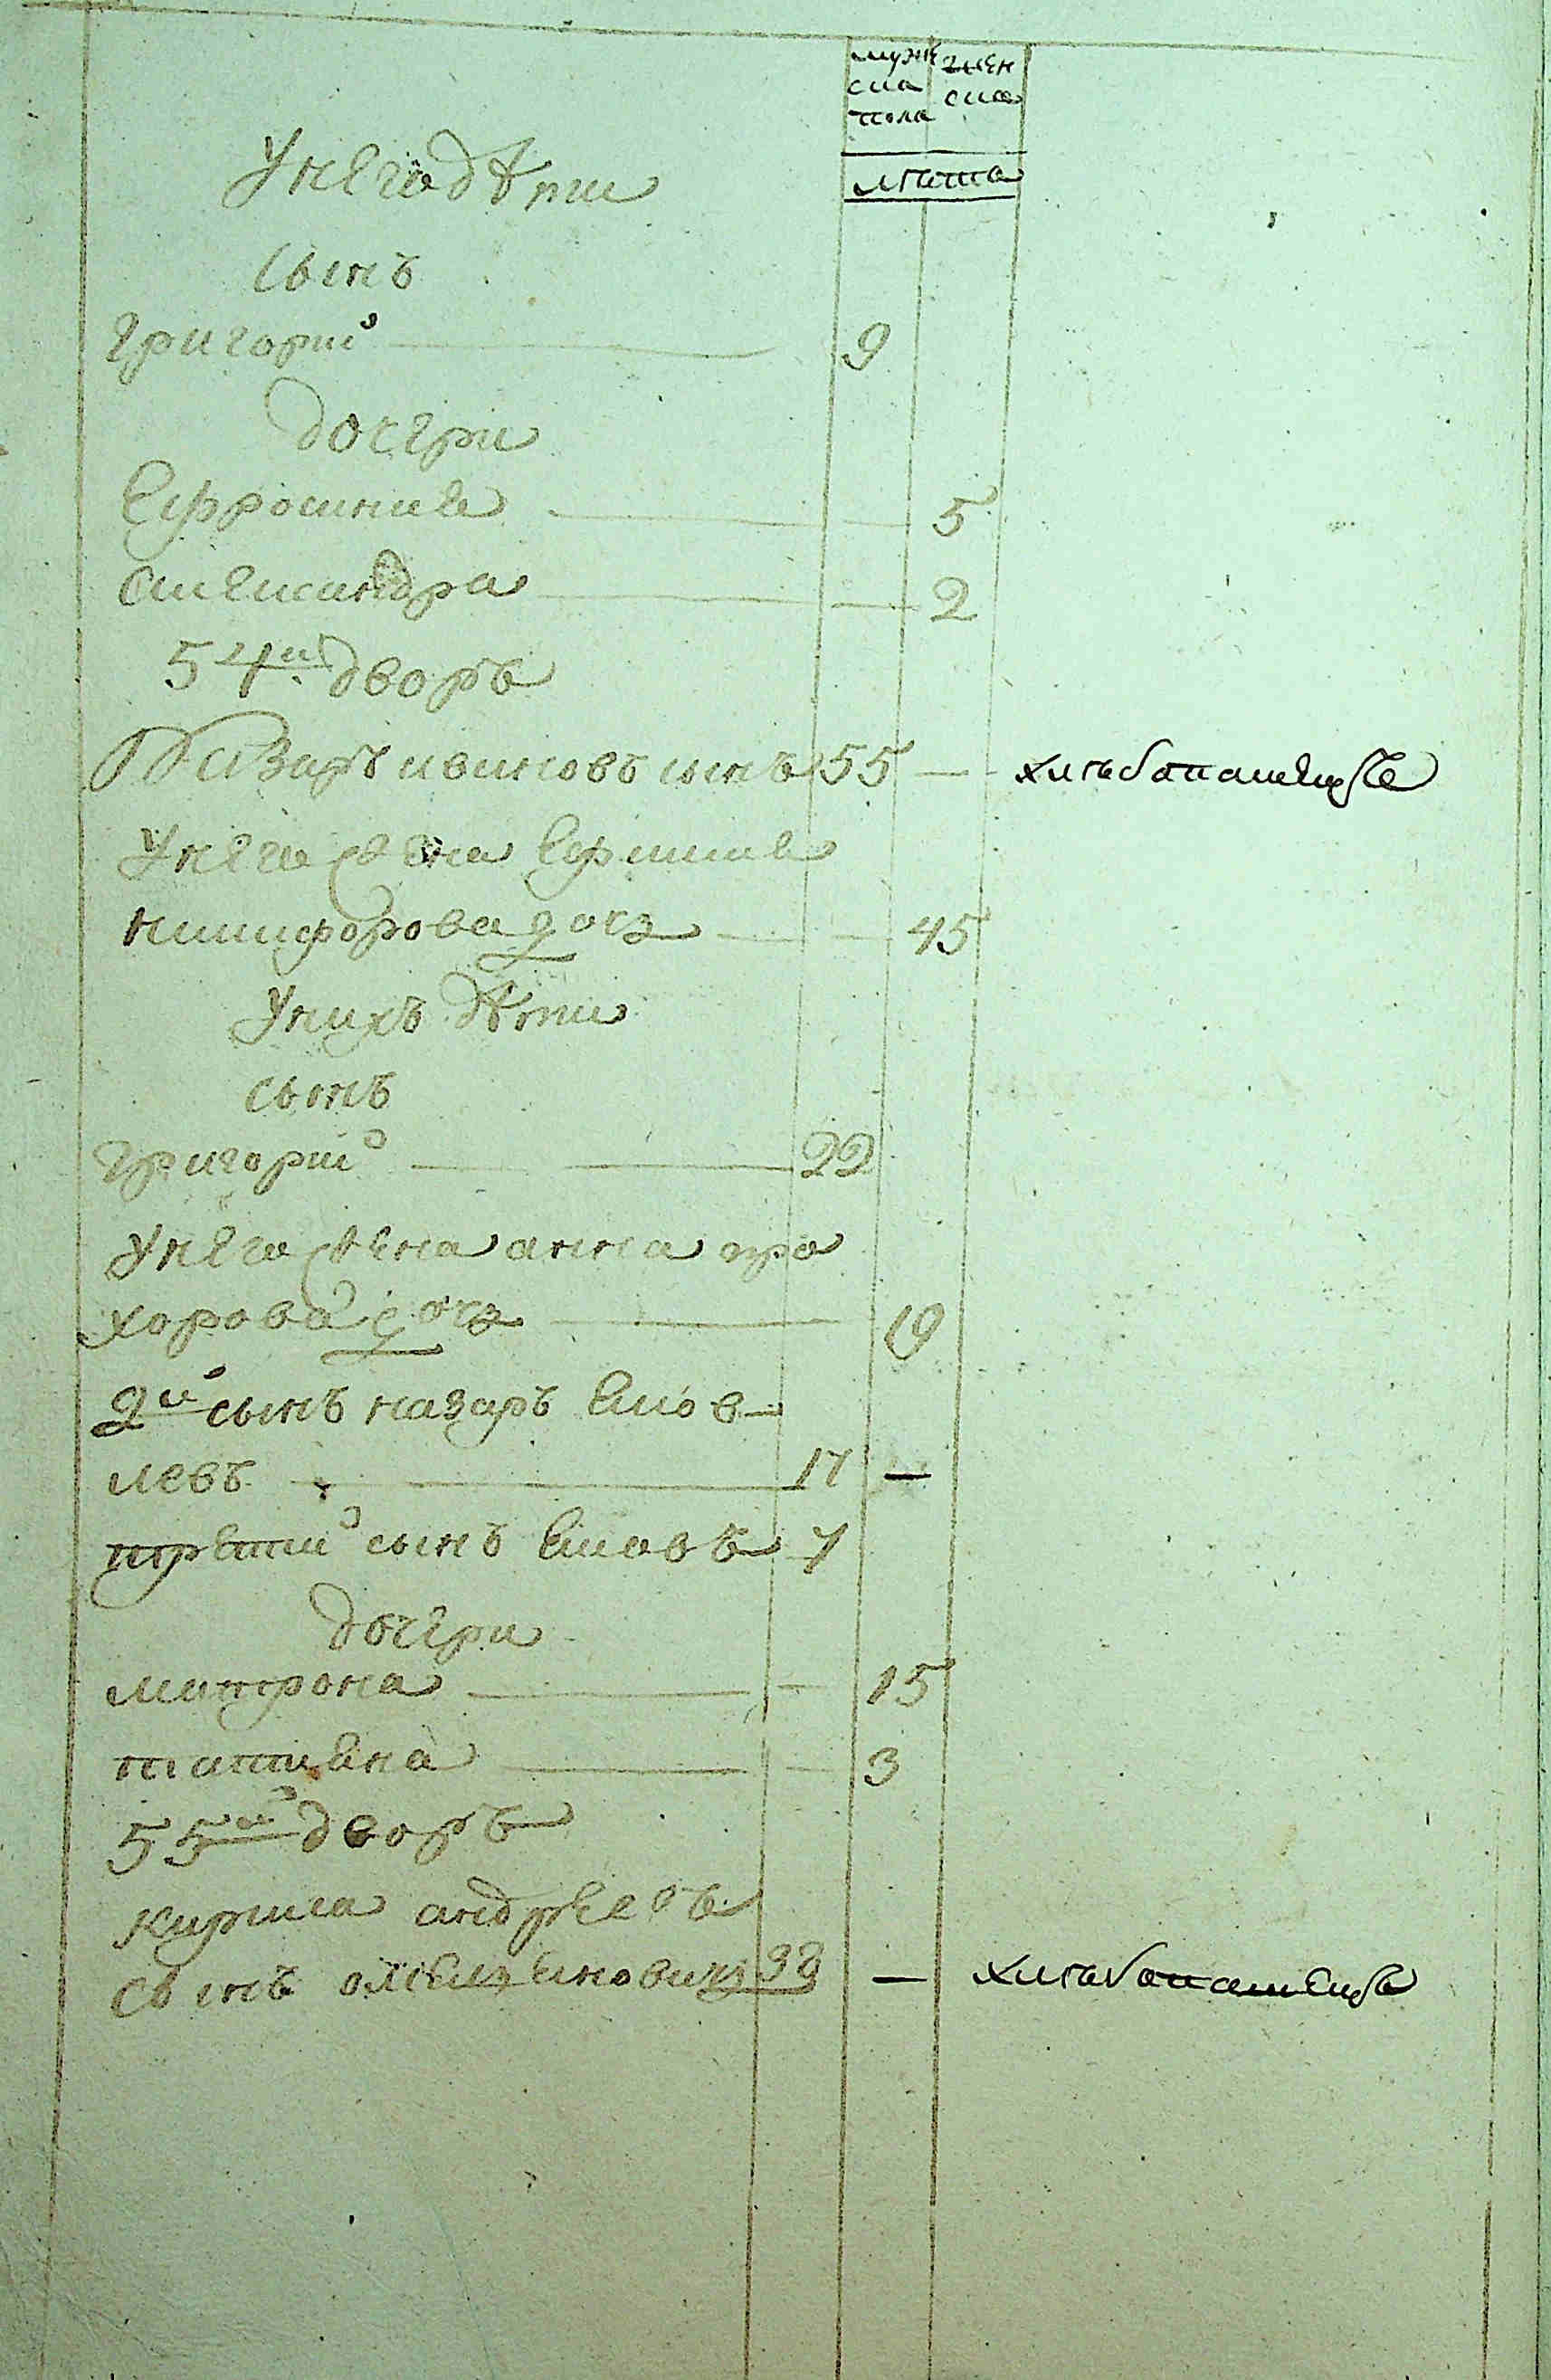 мужес женс
ска ска
пола
лѣта
У него дѣти
сынъ
григорий 9
дочери
Ефросиния 5
александра 2
54й дворъ
Назаръ ивановъ сынъ 55 — хлѣбопашецъ
У него жена Ефимия
никифорова дочь 45
У нихъ дѣти
сынъ
григорий 22
У него жена анна про
хорова дочь 19
2й сынъ назаръ Яков
левъ 17 —
третий сынъ Яковъ 7
дочери
матрона 15
татияна 3
55й дворъ
кирила андрѣевъ
сынъ 38 — хлѣбопашецъ